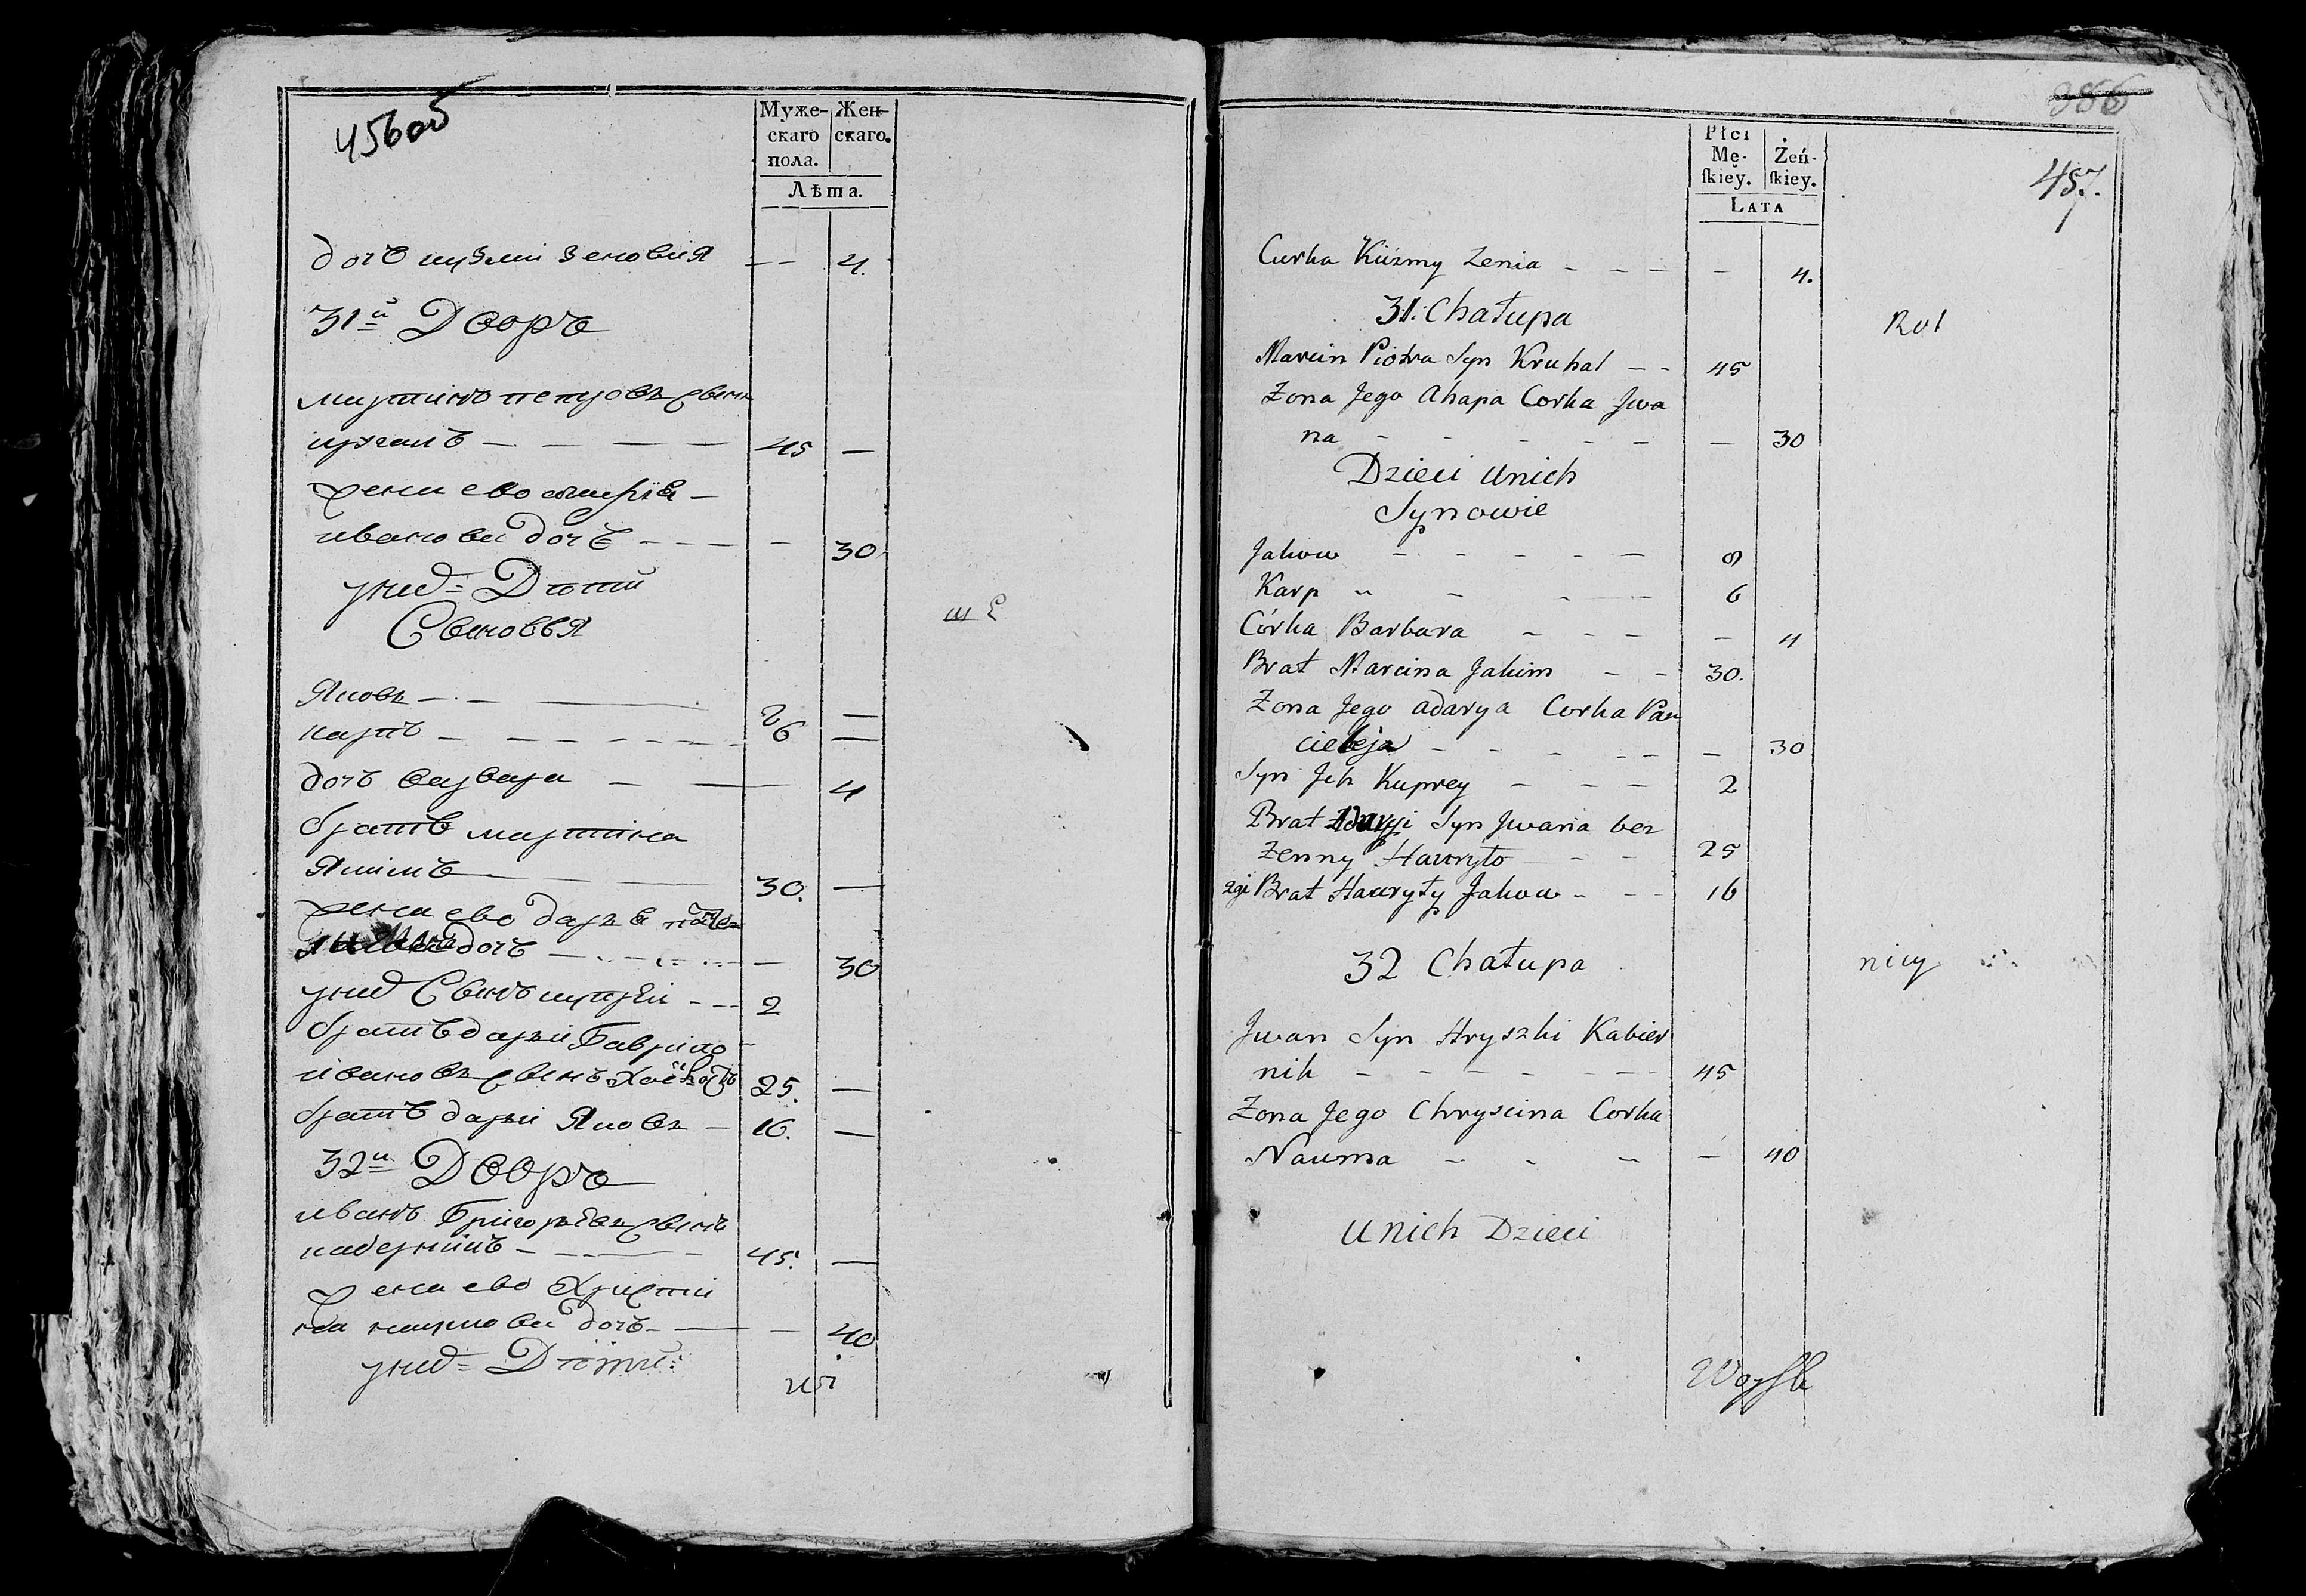 456об
Муже- Жен-
скаго скаго.
пола.
Лѣта.
дочь кузми Зеновия — — 4.
31й Дворъ
мартинъ петровъ сынъ
кругалъ — — — — 45 —
жена ево агафія —
иванова дочь — — — — 30.
у них= Дѣти
Сыновья
Яковъ — — —
карпъ — — — — 6 —
дочь варвара — — — 4
братъ мартина
Якимъ — — 30. —
жена ево даръя
дочь — — — 30
у них Сынъ купрѣй — — 2
братъ даръи Гаврило —
ивановъ сынъ холостъ 25. —
братъ даръи Яковъ — 16. —
32й Дворъ
иванъ Григоръевъ сынъ
каберникъ — — — 45. —
жена ево Христи
на наумова дочь — — — 40
у них= Дѣти:
386
457.
Płci
Mę- Żeń-
ſkiey. ſkiey.
LATA
Curka Kuźmy Zenia — — — — 4.
31. Chałupa
Rol
Marcin Piotra Syn Kruhal — — 45
Zona Jego Ahapa Corka Jwa
na — — — — — — 30
Dzieci unich
Synowie
Jakow — — — — — 8
Karp — — — 6
Córka Barbara — — — — 4
Brat Marcina Jakim — — 30.
Zona Jego adarya Corka Pan
cieleja — — — — — — 30
Syn Jch Kuprey — — — 2
Brat Daryi Syn Jwana bez
żenny Hawryło — — 25
2gi Brat Hawryły Jakow — — 16
32 Chałupa
nicy
Jwan Syn Hryszki Kabier
nik — — — — — — 45
Zona Jego Chryscina Corka
Nauma — — — — 40
unich Dzieci